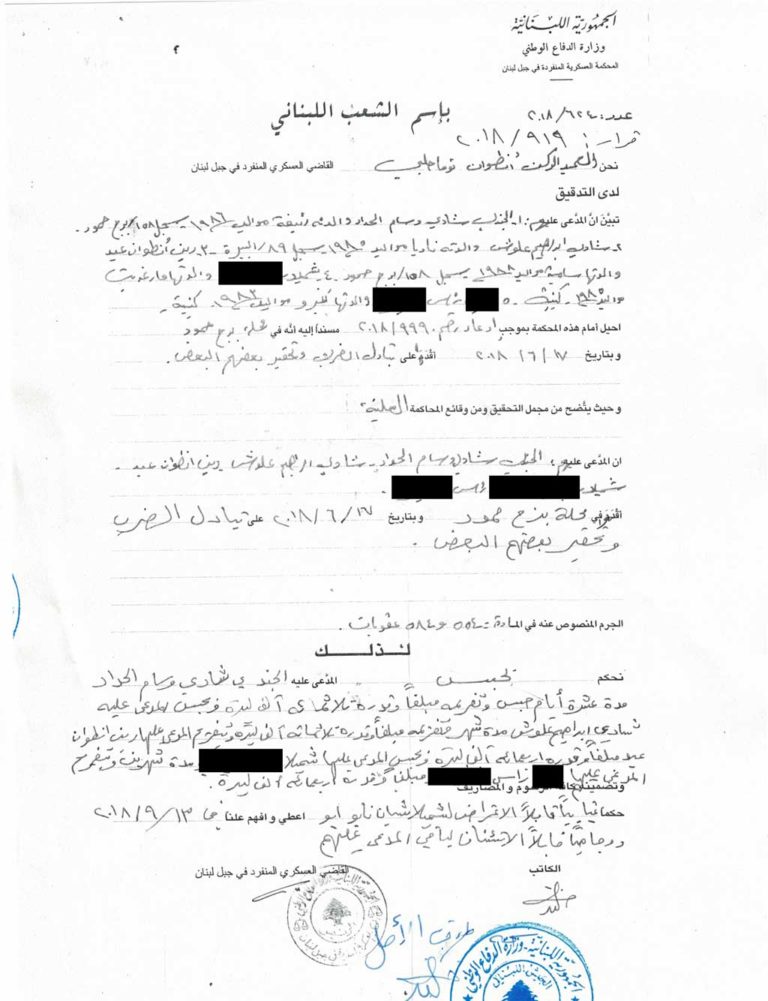 الجمهورية اللبنانية
وزارة الدفاع الوطني
المحكمة العسكرية المنفردة في جبل لبنان
٢
عدد: ٢٠١٨/٦٢٤
بإسم الشعب اللبناني
قرار: ٢٠١٨/٩١٩
نحن العميد الركن أنطوان توما حلبي القاضي العسكري المنفرد في جبل لبنان
لدى التدقيق
تبيّن انّ المدّعى عليهم: ١- الجندي شادي وسام الحداد والدته رئيفة مواليد ١٩٨٦ سجل ١٥٨/برج حمود.
٢- شادي ابراهيم علوش والدته ناديا مواليد ١٩٨٠ سجل ٨٩/ ٣- رين أنطوان عيد
والدتها سامية مواليد ١٩٨٨ سجل ١٥٨/برج حمود ٤- والدتها مارغريت
مواليد ١٩٨٥ ٥- والدتها مواليد ١٩٨٣
احيل أمام هذه المحكمة بموجب إدعاء رقم ٢٠١٨/٩٩٩٠ مسنداً إليه انّه في محلة برج حمود
و بتاريخ ٢٠١٨/٦/١٧ أقدموا على تبادل الضرب وتحقير بعضهم البعض.
و حيث يتّضح من مجمل التحقيق ومن وقائع المحاكمة العلنية
ان المدّعى عليهم: الجندي شادي وسام الحداد - شادي ابراهيم علوش - رين انطوان عيد -
أقدموا في محلة برج حمود و بتاريخ ٢٠١٨/٦/١٧ على تبادل الضرب
وتحقير بعضهم البعض.
الجرم المنصوص عنه في المادة: ٥٥٤ و ٥٨٤ عقوبات.
لذلك
نحكم بحبس المدّعى عليه الجندي شادي وسام الحداد
مدة عشرة أيام حبس وتغريمه مبلغاً وقدره ثلاثماية ألف ليرة وبحبس المدعى عليه
شادي ابراهيم علوش مدة شهر وتغريمه مبلغاً وقدره ثلاثماية ألف ليرة وتغريم المدعى عليها رين انطوان
عيد مبلغاً وقدره اربعماية ألف ليرة وبحبس المدعى عليها مدة شهرين وتغريم
المدعى عليها مبلغاً وقدره اربعماية ألف ليرة.
وتضمينهم كافة الرسوم و المصاريف
حكماً غيابياً قابلاً الاعتراض اعطي و افهم علناً في ٢٠١٨/٩/١٣
ووجاهياً قابلاً الاستئناف لباقي المدعى عليهم
الكاتب القاضي العسكري المنفرد في جبل لبنان
طبق الأصل
الجمهورية اللبنانية - وزارة الدفاع الوطني
الجيش اللبناني